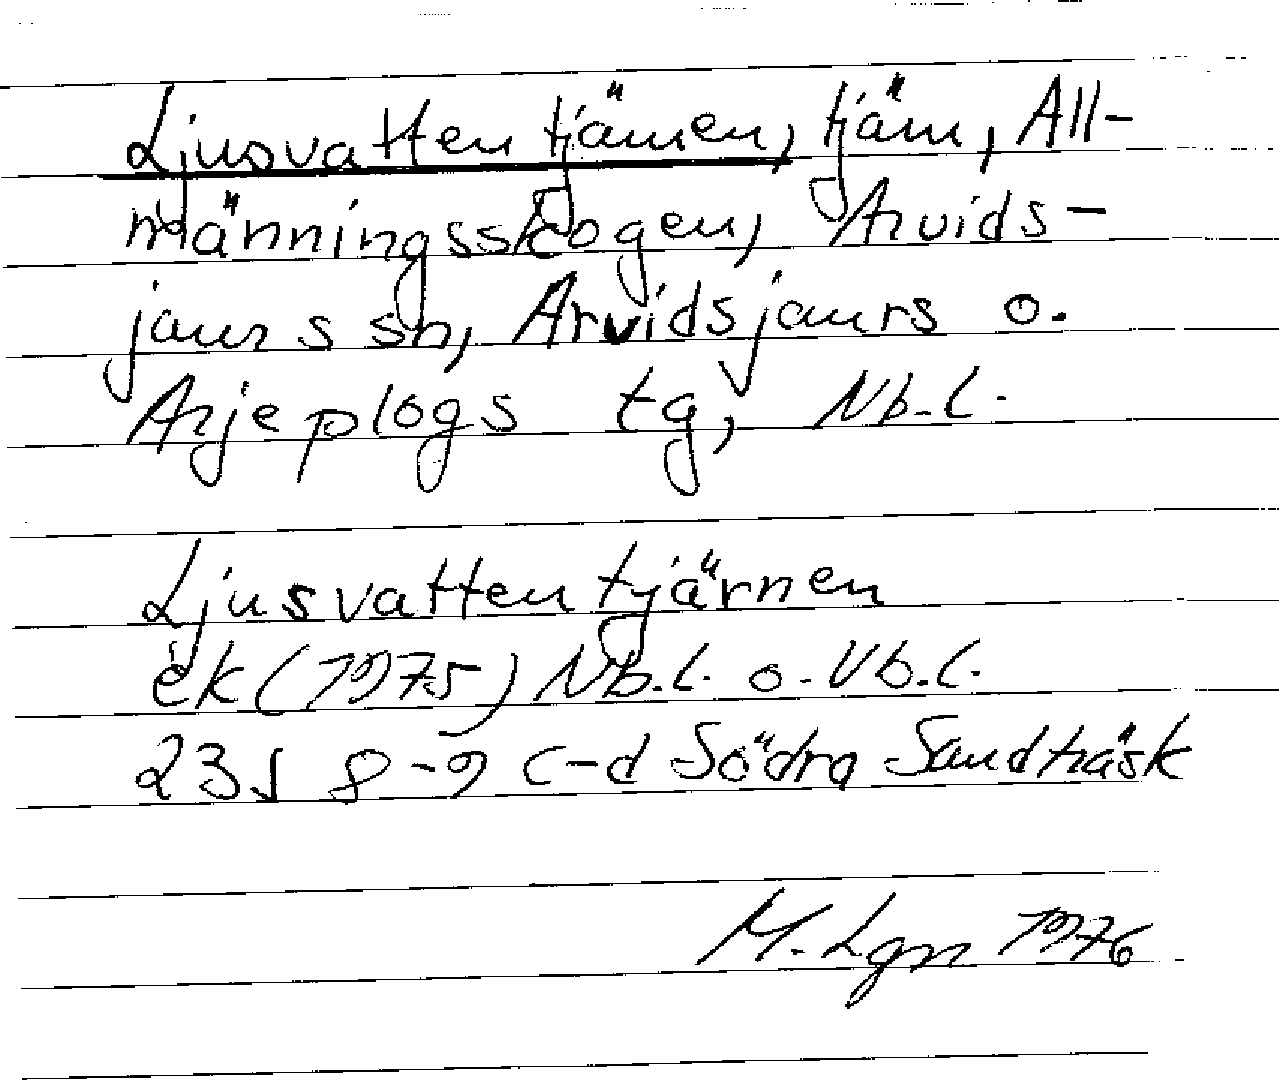 Ljusvattentjärnen, tjärn, All-
männingsskogen, Arvids-
jaurs sn, Arvidsjaurs o.
Arjeplogs tg, Nb.l.
Ljusvattentjärnen
ek (1975) Nb.l. o. Vb.l.
23J 8-9 c-d Södra Sandträsk
M. Lgn 1976